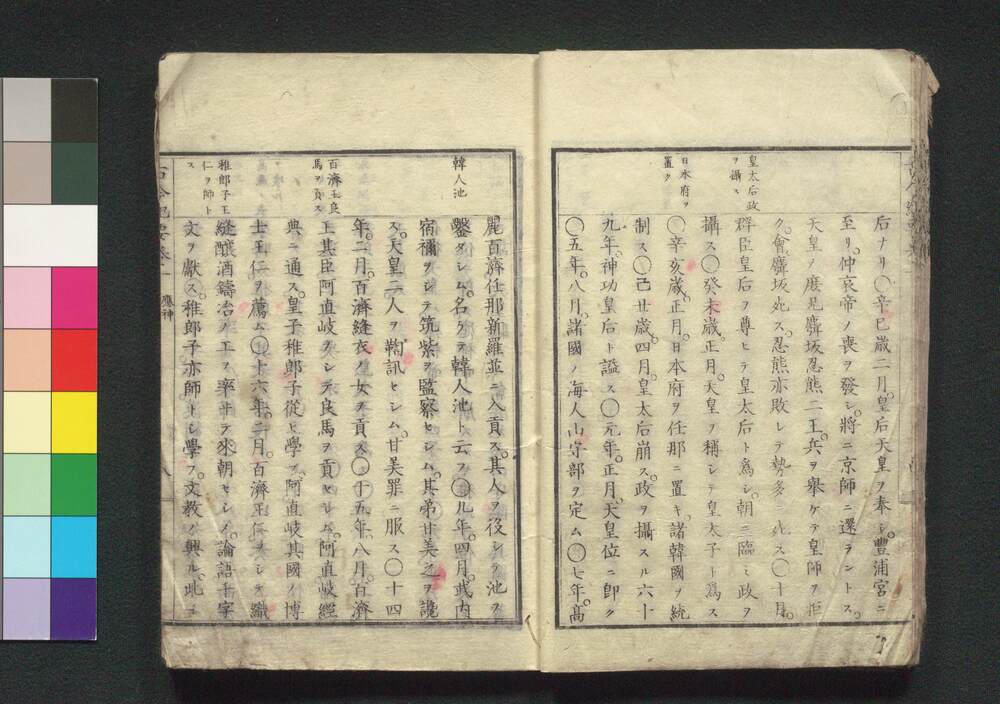 皇太后政
ヲ攝ス
日本府ヲ
置ク
后ナリ〇辛巳歳二月皇后天皇ヲ奉シ豐浦宮ニ
至リ仲哀帝ノ喪ヲ發シ將ニ京師ニ還ラントス
天皇ノ庶兄麛坂忍熊二王兵ヲ舉ケテ皇師ヲ拒
ク會麛坂死ス忍熊亦敗レテ勢多ニ死ス〇十月
群臣皇后ヲ尊ヒテ皇太后ト爲シ朝ニ臨ミ政ヲ
攝ス〇癸未歳正月天皇ヲ稱シテ皇太子ト爲ス
〇辛亥歳正月日本府ヲ任那ニ置キ諸韓國ヲ統
制ス〇己丑歳四月皇太后崩ス政ヲ攝スル六十
九年神功皇后ト謚ス〇元年正月天皇位ニ卽ク
〇五年八月諸國ノ海人山守部ヲ定ム〇七年高
韓人池
百濟王良
馬ヲ貢ス
稚郎子王
仁ヲ師ト
ス
麗百濟任那新羅並ニ入貢ス其人ヲ役シテ池ヲ
鑿タシム名ケテ韓人池ト云フ〇九年四月武内
宿禰ヲシテ筑紫ヲ監察セシム其弟甘美之ヲ讒
ス天皇二人ヲ鞫訊セシム甘美罪ニ服ス〇十四
年二月百濟縫衣ノ女ヲ貢ス〇十五年八月百濟
王其臣阿直岐ヲシテ良馬ヲ貢セシム阿直岐經
典ニ通ス皇子稚郎子從ヒ學フ阿直岐其國ノ博
士王仁ヲ薦ム〇十六年二月百濟王仁ヲシテ織
縫釀酒鑄冶ノ工ヲ率井テ來朝セシメ論語千字
文ヲ獻ス稚郎子亦師トシ學フ文教ノ興ル此ニ
應神